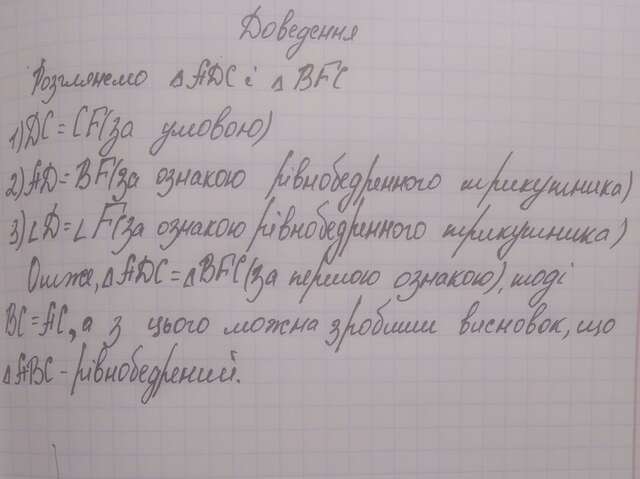 Доведення
Розглянемо ΔADC і ΔBFC
1) DC = CF (за умовою)
2) AD = BF (за ознакою рівнобедренного трикутника)
3) ∠D = ∠F (за ознакою рівнобедренного трикутника)
Отже, ΔADC = ΔBFC (за першою ознакою), тоді
BC = AC, а з цього можна зробити висновок, що
ΔABC - рівнобедрений.